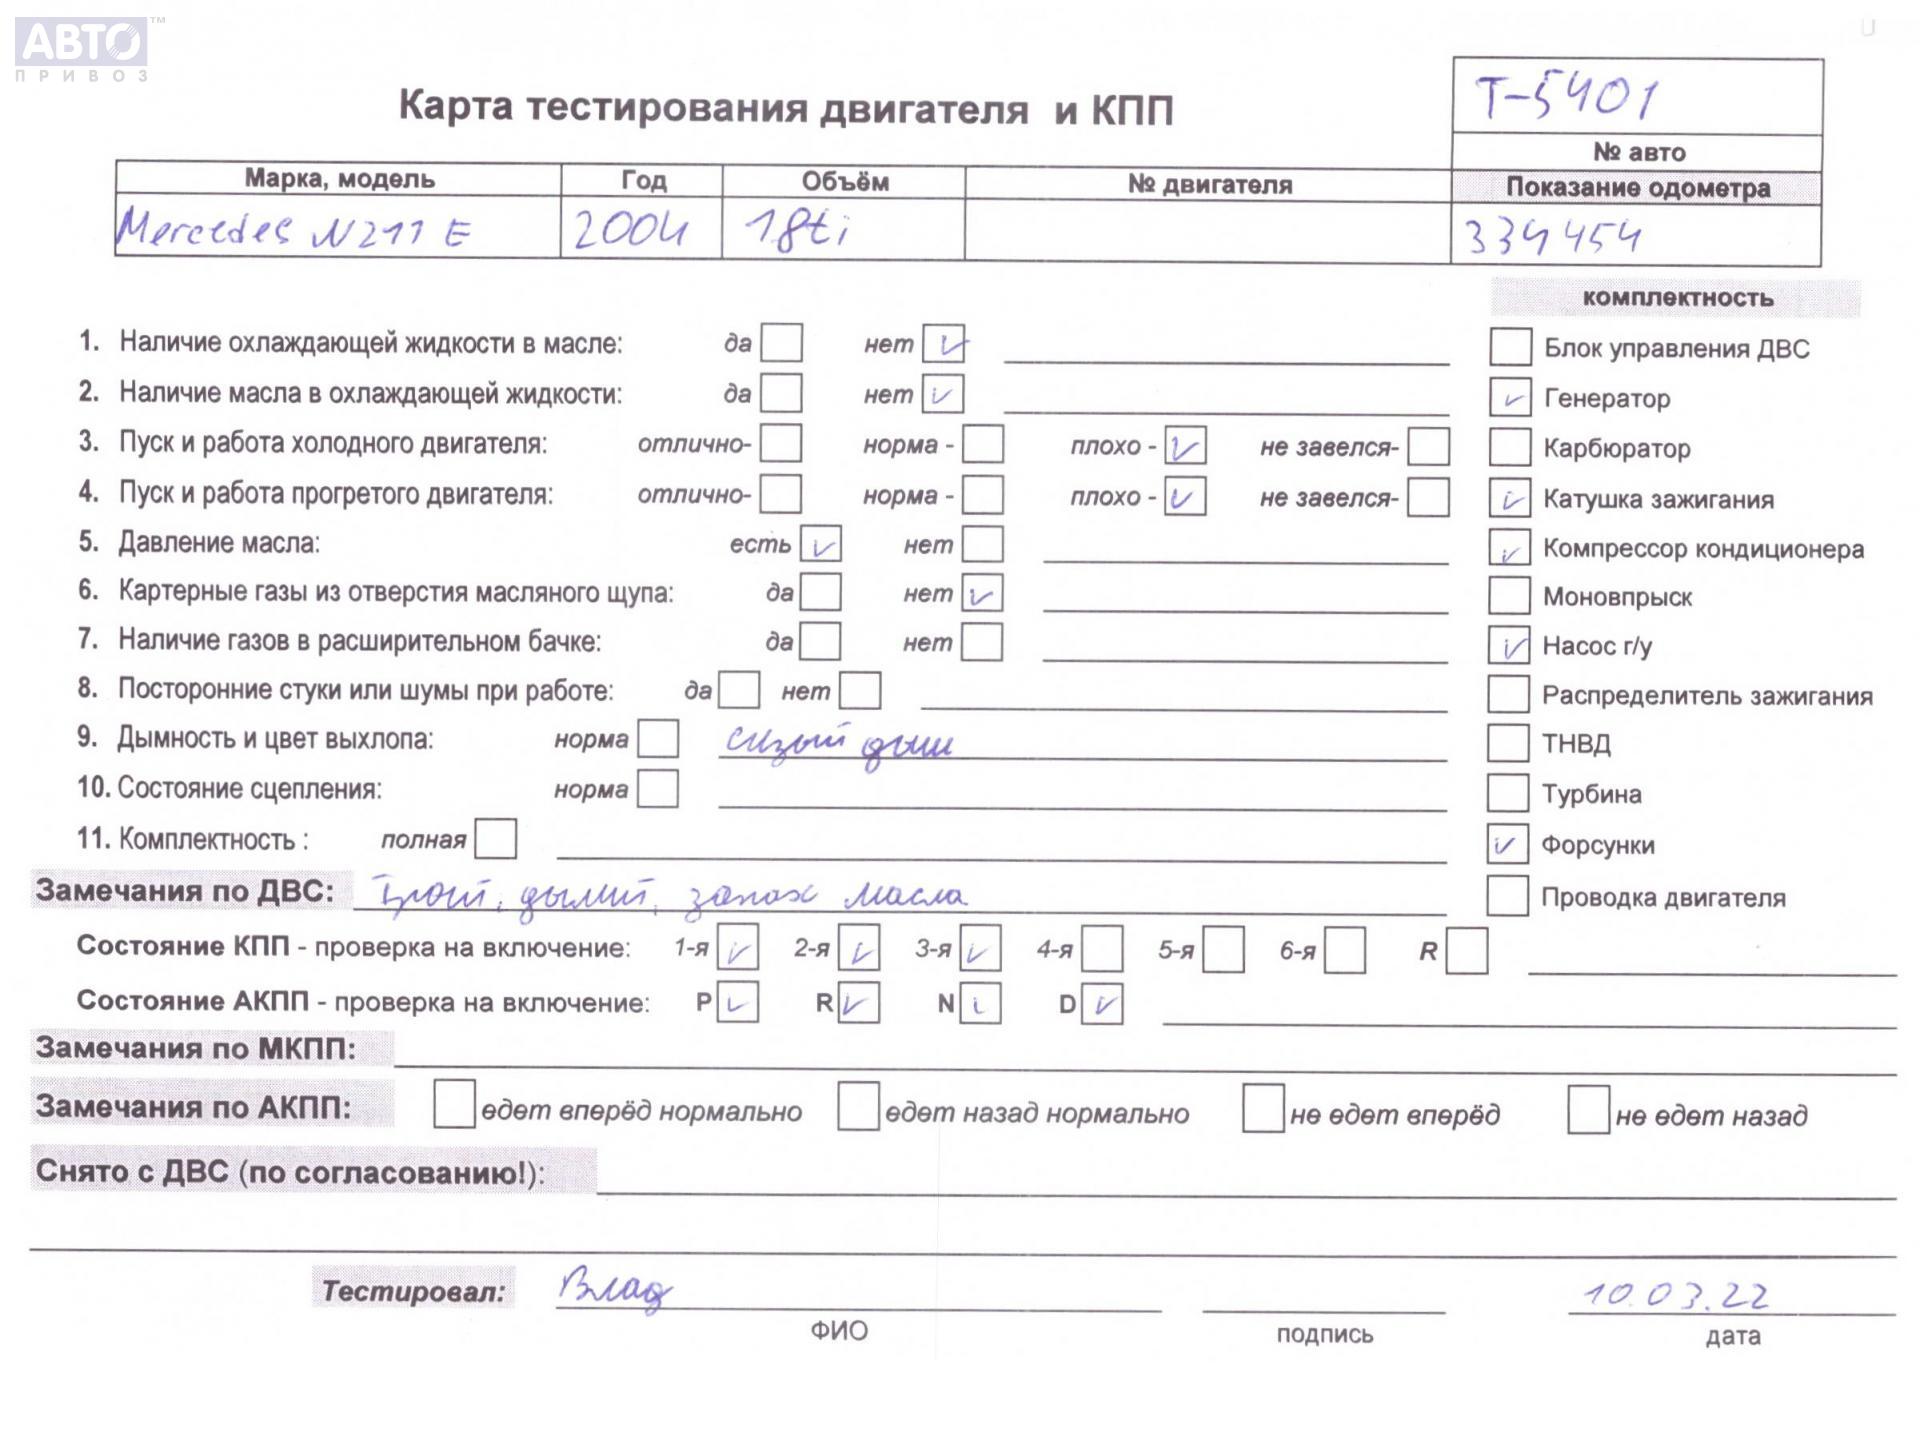 АВТО™
ПРИВОЗ
Карта тестирования двигателя и КПП
Т-5401
№ авто
Марка, модель Год Объём № двигателя Показание одометра
Mercedes W211 E 2004 18ti 334454
комплектность
1. Наличие охлаждающей жидкости в масле: да нет ✓ Блок управления ДВС
2. Наличие масла в охлаждающей жидкости: да нет ✓ ✓ Генератор
3. Пуск и работа холодного двигателя: отлично- норма - плохо - ✓ не завелся- Карбюратор
4. Пуск и работа прогретого двигателя: отлично- норма - плохо - ✓ не завелся- ✓ Катушка зажигания
5. Давление масла: есть ✓ нет ✓ Компрессор кондиционера
6. Картерные газы из отверстия масляного щупа: да нет ✓ Моновпрыск
7. Наличие газов в расширительном бачке: да нет ✓ Насос г/у
8. Посторонние стуки или шумы при работе: да нет Распределитель зажигания
9. Дымность и цвет выхлопа: норма сизый дым ТНВД
10. Состояние сцепления: норма Турбина
11. Комплектность : полная ✓ Форсунки
Замечания по ДВС: Троит, дымит, запах масла Проводка двигателя
Состояние КПП - проверка на включение: 1-я ✓ 2-я ✓ 3-я ✓ 4-я 5-я 6-я R
Состояние АКПП - проверка на включение: P ✓ R ✓ N ✓ D ✓
Замечания по МКПП:
Замечания по АКПП: едет вперёд нормально едет назад нормально не едет вперёд не едет назад
Снято с ДВС (по согласованию!):
Тестировал: Влад 10.03.22
ФИО подпись дата